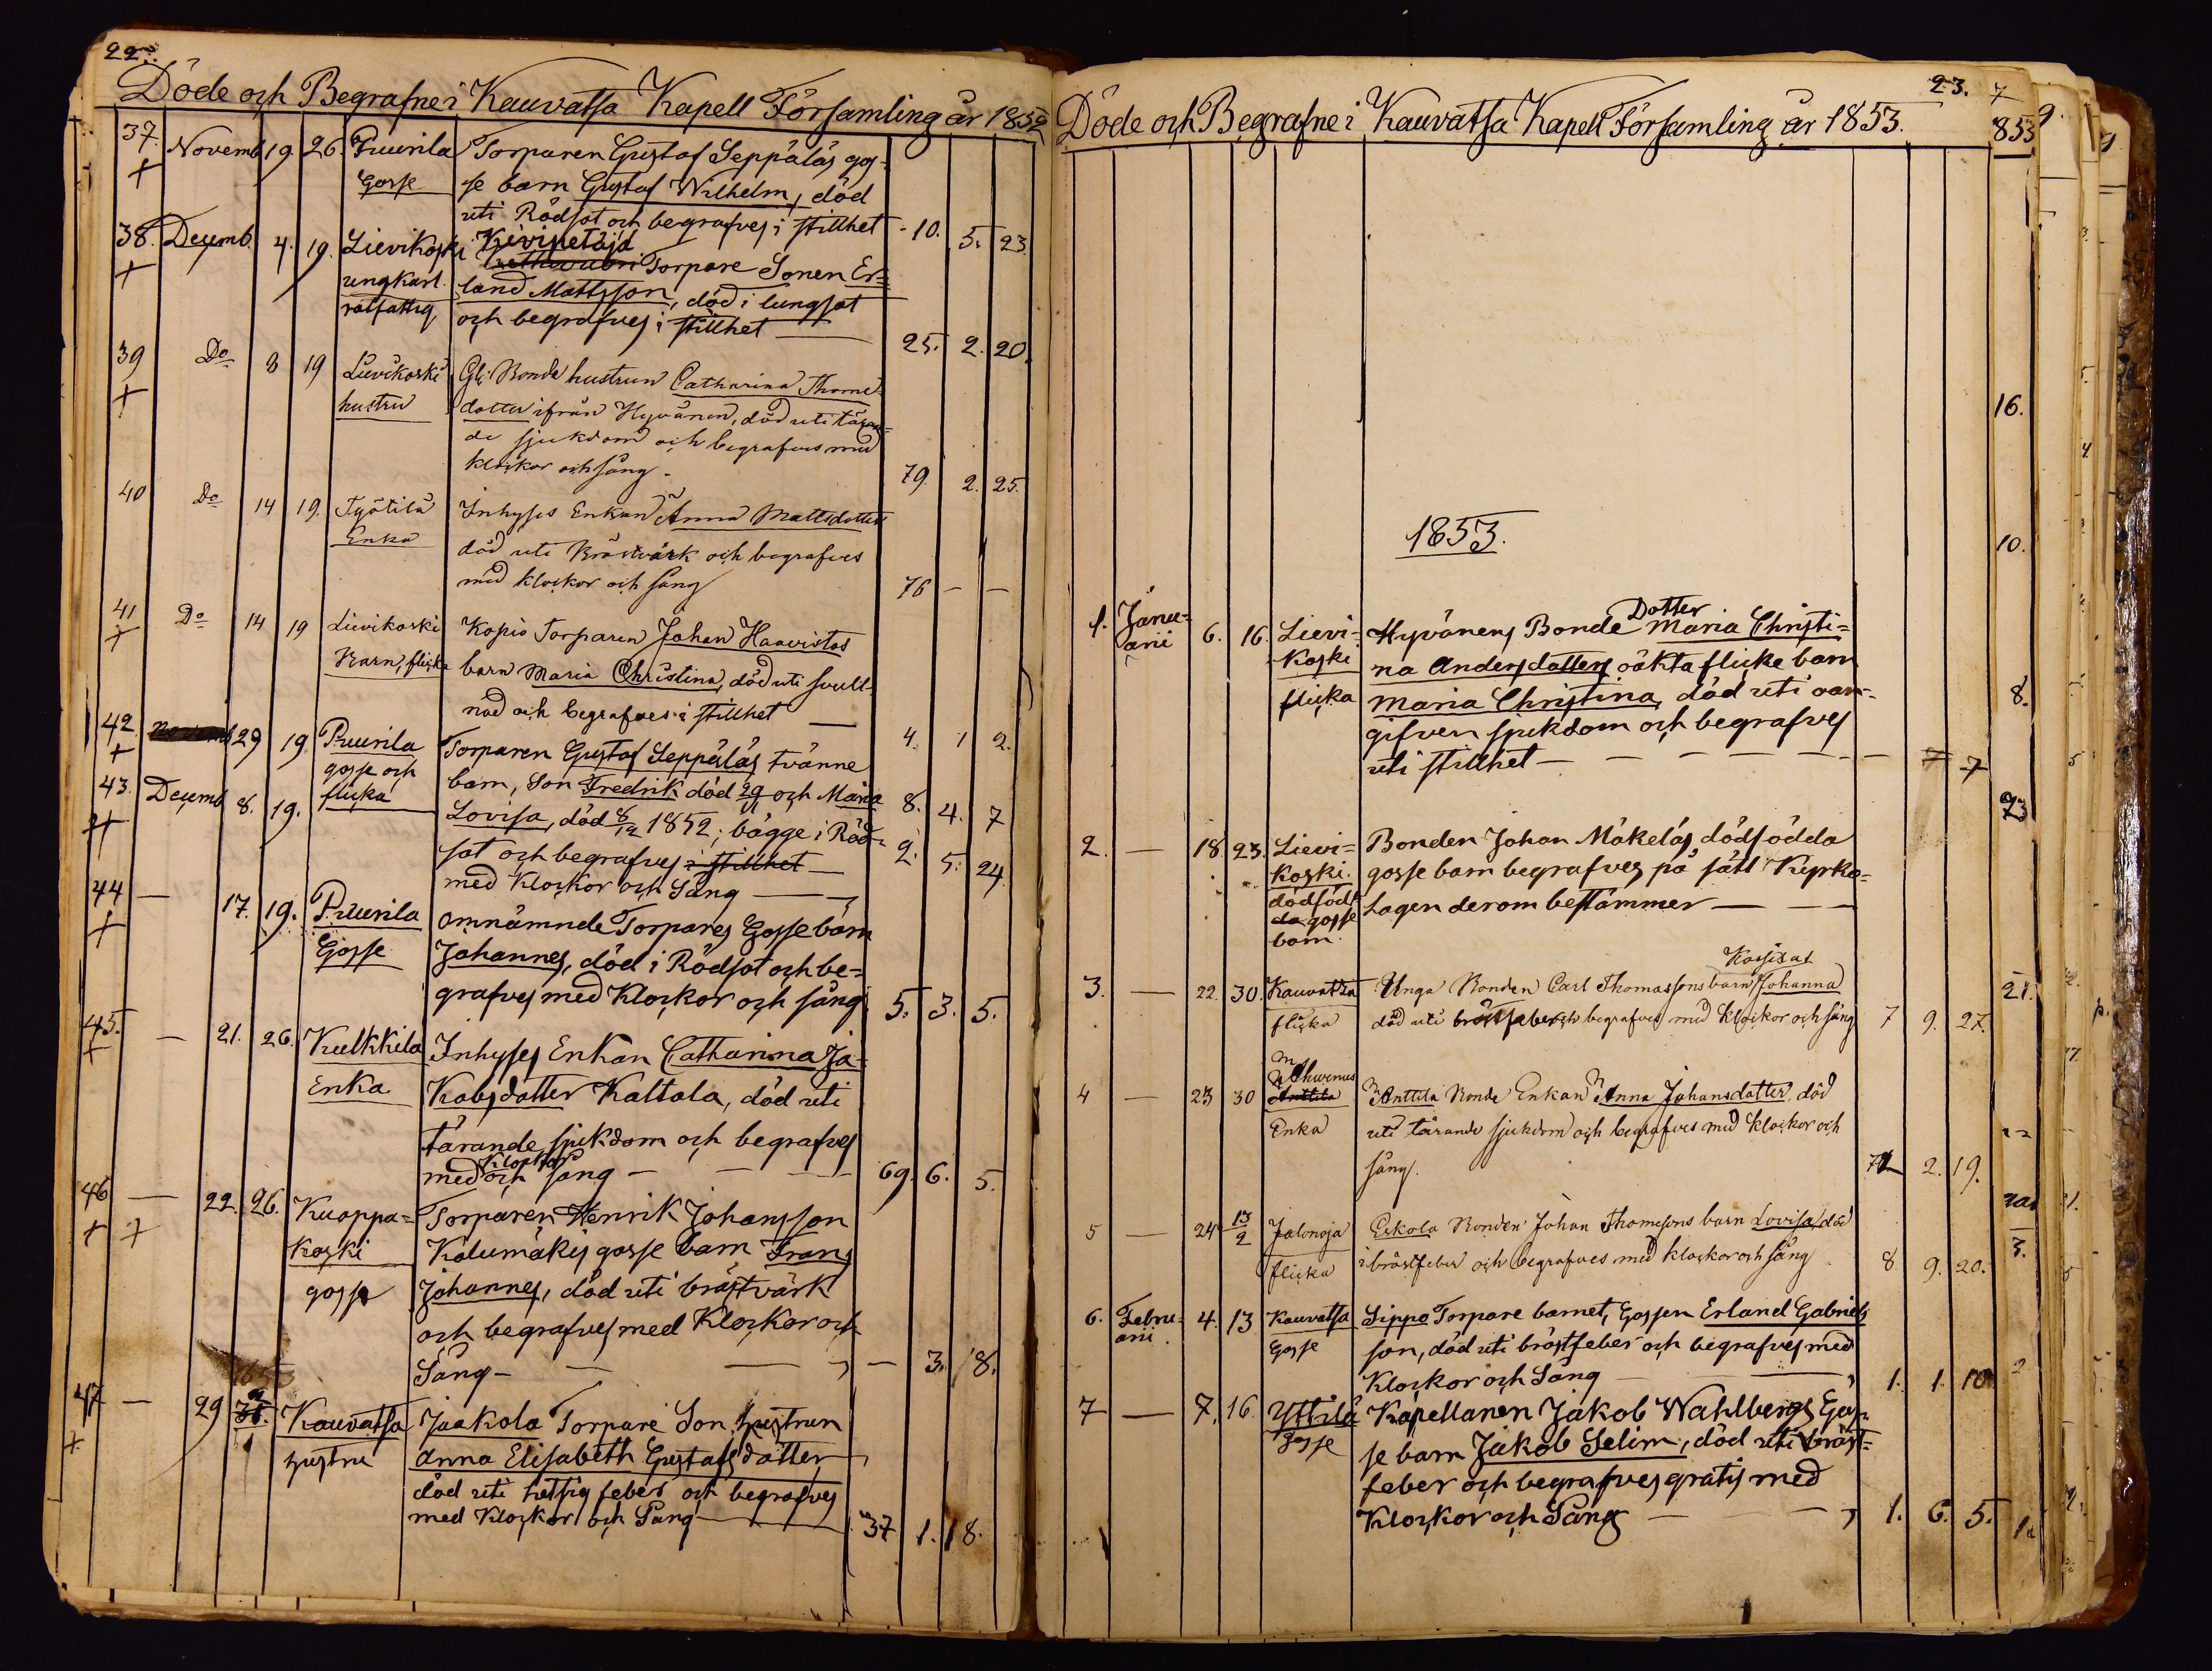 22.
Döde och Begrafne i Kauvatsa Kapell Församling år 1852
37. Novemb 19. 26. Puurila Torparen Gustaf Seppäläs gos-
+ Gosse se barn Gustaf Wilhelm, död
uti Rödsot och begrafves i stillhet - 10. 5. 23
38. Decemb. 4. 19. Lievikoski Kivipetäjä
+ ungkarl. Torpare Sonen Er=
rotfattig land Mattsson, död i lungsot
och begrafves i stillhet 25. 2. 20.
39 Do 8 19 Lievikoski Gl. Bonde hustrun Catharina Thome-
+ hustru dotter ifrån Hyvänen, död uti täran=
de sjukdom och begrafves med
klockor och sång. 79. 2. 25.
40 Do 14 19. Työtilä Inhyses Enkan Anna Mattsdotter
Enka död uti Bröstvärk och begrafves
med klockor och sång 76 - -
41 Do 14 19 Lievikoski Kopio Torparen Johan Haavistos
+ Barn, flicka barn Maria Christina, död uti svull-
nad och begrafves i stillhet 4. 1 2.
42. Novemb 29 19. Puurila Torparen Gustaf Seppäläs tvänne
+ gosse och barn, Son Fredrik död 29/11 och Maria 8. 4. 7
43. Decemb 8. 19. flicka Lovisa, död 8/12 1852; bägge i Röd-
sot och begrafves i stillhet 2. 5. 24
med Klockor och Sång
44 — 17. 19. Puurila omnämnde Torpares Gosse barn
+ Gosse Johannes, död i Rödsot och be=
grafves med Klockor och sång 5. 3. 5.
45. — 21. 26. Kulkkila Inhyses Enkan Catharina Ja-
+ Enka Kobsdotter Kattala, död uti
tärande sjukdom och begrafves
Klockor
med och sång 69. 6. 5.
46 — 22. 26. Kuoppa= Torparen Henrik Johansson
+ + Koski Kalumäkis gosse barn Frans
gosse Johannes, död uti bröstvärk
och begrafves med Klockor och
Sång - 3. 8.
1853
47 — 29 Kauvatsa Jaakola Torpare Son hustrun
+ hustru Anna Elisabeth Gustafsdotter
död uti hetsig feber och begrafves
med Klockor och Sång 37. 1. 18.
23. 7
Döde och Begrafne i Kauvatsa Kapell Församling år 1853.
853
16.
1853.
10.
Dotter
1. Janu= 6. 16. Lievi= Hyvänens Bonde Maria Christi=
arii Koski na Andersdotters oäkta flicke barn
flicka Maria Christina, död uti oan-
8.
gifven sjukdom och begrafves
uti stillhet — — — — 7 7
73
2. — 18. 23. Lievi= Bonden Johan Mäkeläs dödfödda
Koski. gosse barn begrafves på sätt Kyrko=
dödföd= Lagen derom bestämmer — — —
da gosse
barn.
Kassisas
3. — 22. 30. Kauvatsa Unga Bonden Carl Thomassons barn Johanna
flicka död uti bröstfeber och begrafves med klockor och sång 7 9. 27.
4 — 23 30 Anttila Anttila Bonde Enkan Anna Johansdotter, död
Enka uti tärande sjukdom och begrafves med klockor och
sång. 2. 19.
5 — 24 13/2 Jalonoja Eskola Bonden Johan Thomesons barn Lovisa, död
flicka i bröstfeber och begrafves med klockor och sång 8. 9. 20.
3.
6. Febru- 4. 13 Kauvatsa Sippo Torpare barnet, Gossen Erland Gabriels
arii. Gosse son, död uti bröstfeber och begrafves med
Klockor och Sång 1. 1. 10
2
7 — 7. 16. Yttilä Kapellanen Jakob Wahlbergs Gos-
gosse se barn Jakob Selim, död uti bröst=
feber och begrafves gratis med
Klockor och Sång 1. 6. 5.